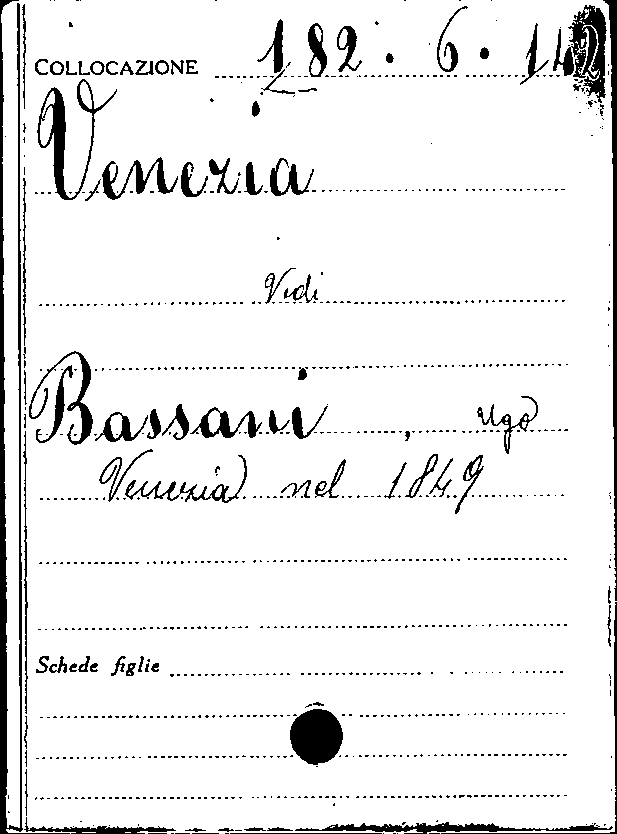 COLLOCAZIONE 182.6.142
Venezia
Vedi
Bassani, Ugo
Venezia nel 1849
Schede figlie